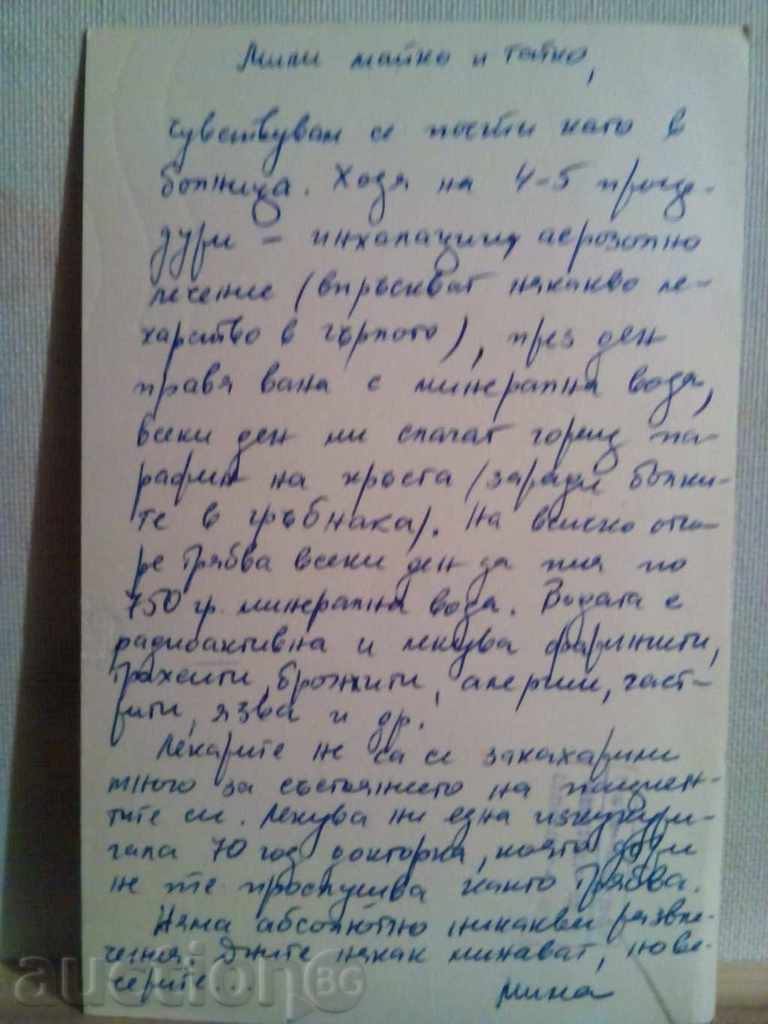 Мили майко и татко,
чувствувам се почти като в
болница. Ходя на 4-5 проце-
дури – инхалации, аерозолно
лечение (впръскват някакво ле-
карство в гърлото), през ден
правя вана с минерална вода,
всеки ден ми слагат горещ па-
рафин на кръста (заради болки-
те в гръбнака). На всичко отго-
ре трябва всеки ден да пия по
750 гр. минерална вода. Водата е
радиоактивна и лекува фарингити,
трахеити, бронхити, алергии, гаст-
рити, язва и др.
Лекарите не са се закахърили
много за състоянието на пациен-
тите си. Лекува ни една изкукури-
гала 70 год. докторка, която дори
не те прослушва както трябва.
Няма абсолютно никакви развле-
чения. Дните някак минават, но ве-
черите...
Мина
auctionBG